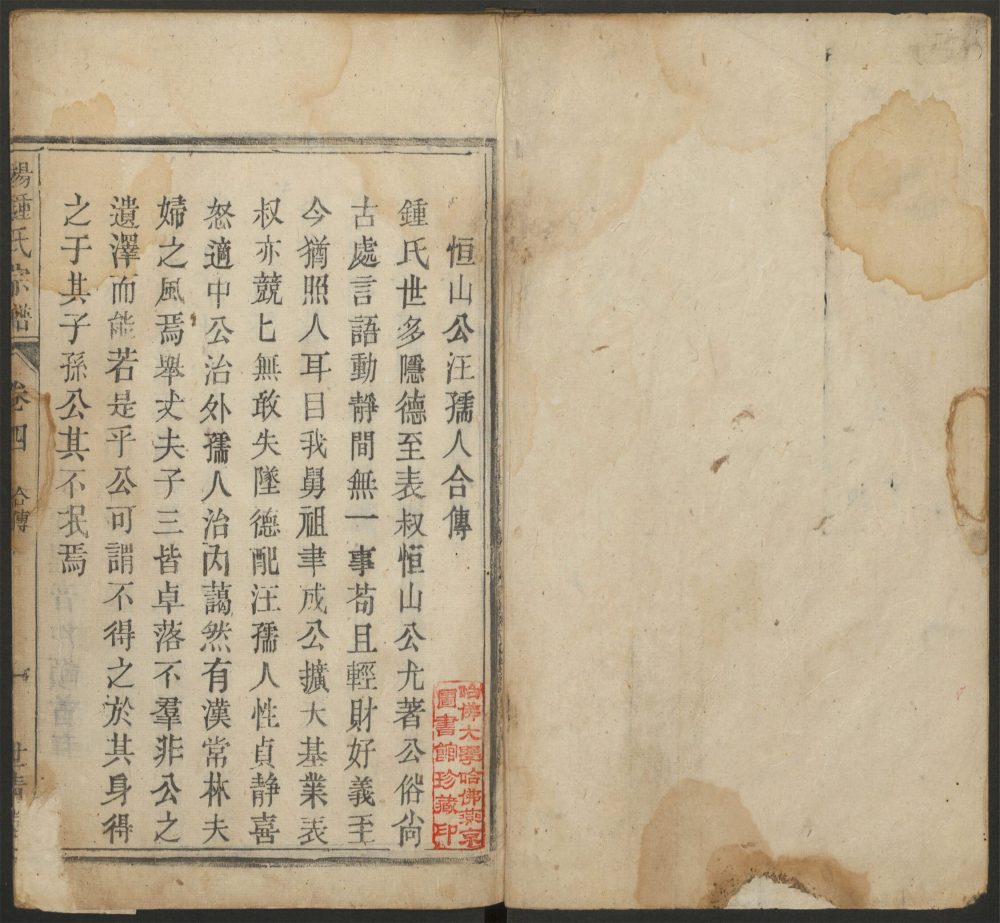 恒山公汪孺人合傳
鍾氏世多隱德至表叔恒山公尤著公俗尚
古處言語動靜間無一事苟且輕財好義至
今猶照人耳目我舅祖聿成公擴大基業表
叔亦競匕無敢失墜德配汪孺人性貞靜喜
怒適中公治外孺人治内藹然有漢常林夫
婦之風焉舉丈夫子三皆卓落不羣非公之
遺澤而能若是乎公可謂不得之於其身得
之于其子孫公其不泯焉
鍾氏宗譜
卷四
合傳
一
哈佛大學哈佛燕京
圖書館珍藏印